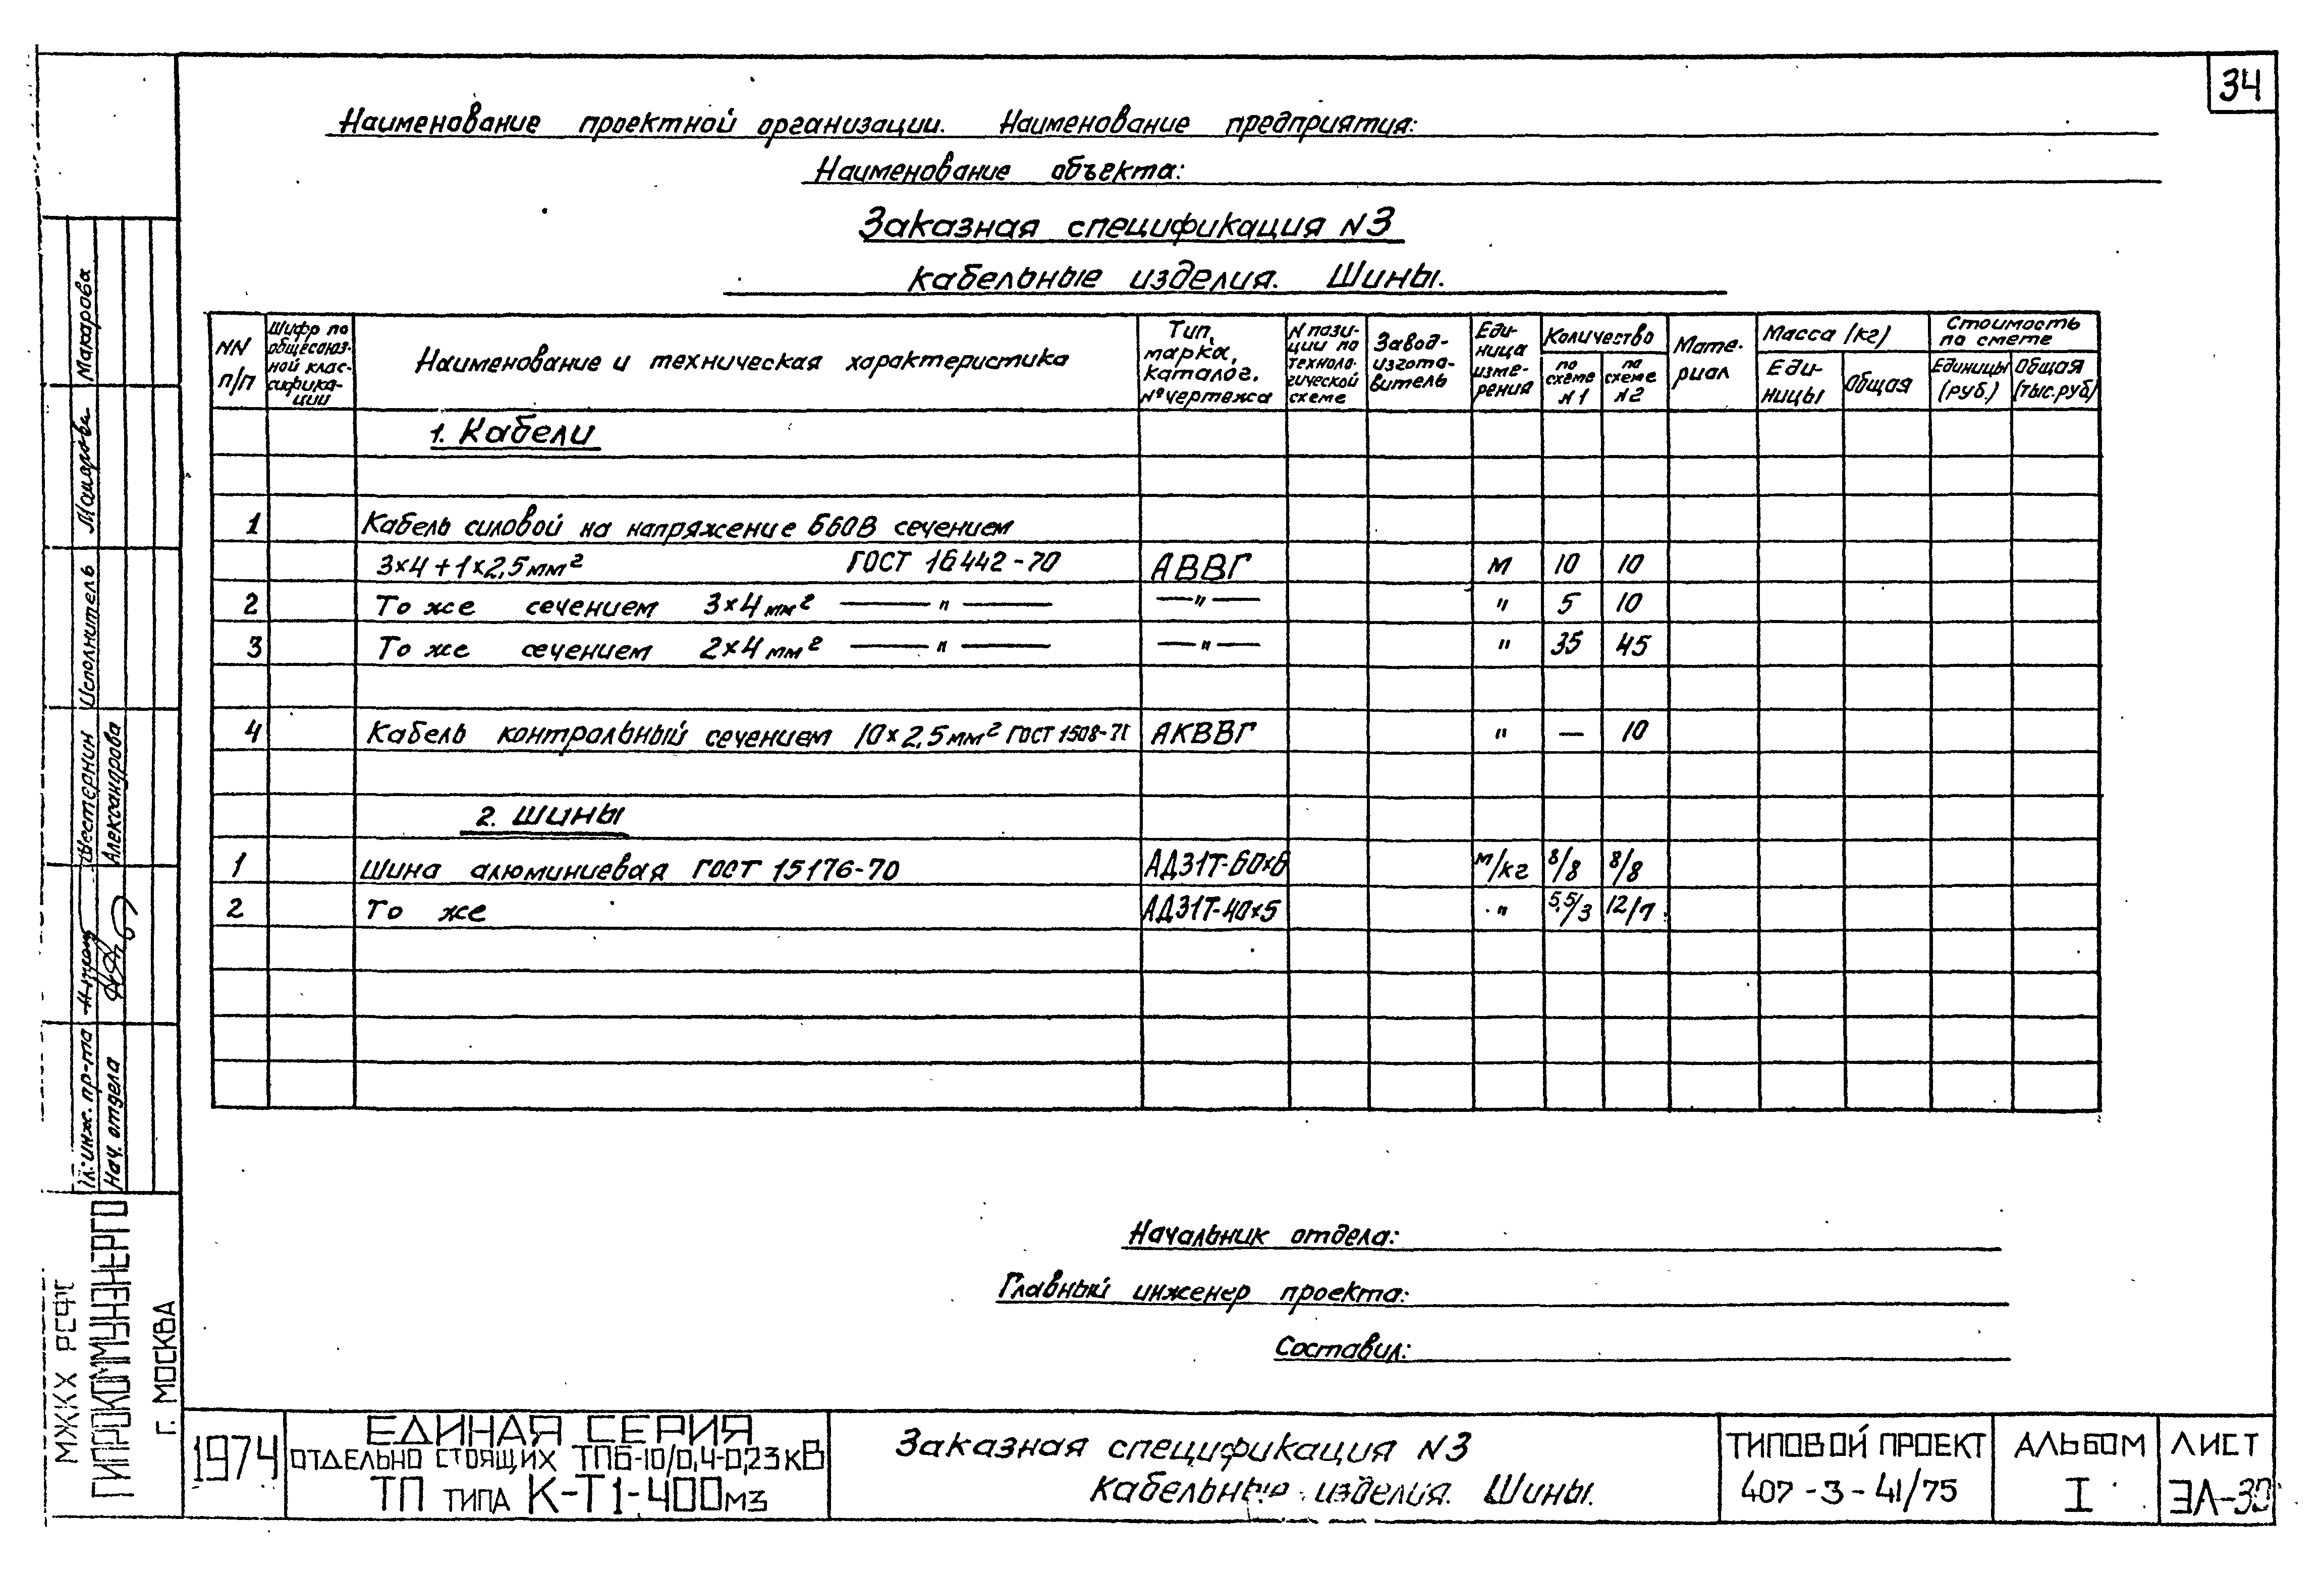 34
Наименование проектной организации. Наименование предприятия:
Наименование объекта:
Заказная спецификация N3
кабельные изделия. Шины.
NN п/п
Шифр по общесоюз-ной клас-сифика-ции
Наименование и техническая характеристика
Тип, марка, каталог. № чертежа
N пози-ции по техноло-гической схеме
Завод-изгото-витель
Еди-ница изме-рения
Количество
по схеме N1
по схеме N2
Мате-риал
Масса (кг)
Еди-ницы
Общая
Стоимость по смете
Единицы (руб.)
Общая (тыс.руб)
1. Кабели
1 Кабель силовой на напряжение 660В сечением
3×4+1×2,5мм² ГОСТ 16442-70 АВВГ м 10 10
2 То же сечением 3×4мм² —"— —"— " 5 10
3 То же сечением 2×4мм² —"— —"— " 35 45
4 Кабель контрольный сечением 10×2,5мм² ГОСТ 1508-71 АКВВГ " — 10
2. Шины
1 Шина алюминиевая ГОСТ 15176-70 АД31Т-60×6 м/кг 8/8 8/8
2 То же АД31Т-40×5 " 5,5/3 12/7
Начальник отдела:
Главный инженер проекта:
Составил:
1974
ЕДИНАЯ СЕРИЯ
ОТДЕЛЬНО СТОЯЩИХ ТП6-10/0,4-0,23кВ
ТП ТИПА К-Т1-400м3
Заказная спецификация N3
Кабельные изделия. Шины.
ТИПОВОЙ ПРОЕКТ
407-3-41/75
АЛЬБОМ
I
ЛИСТ
ЭЛ-30
МЖКХ РСФС
ГИПРОКОММУНЭНЕРГО
г. МОСКВА
Гл. инж. пр-та Шестернин Исполнитель Макарова
Нач. отдела Александрова